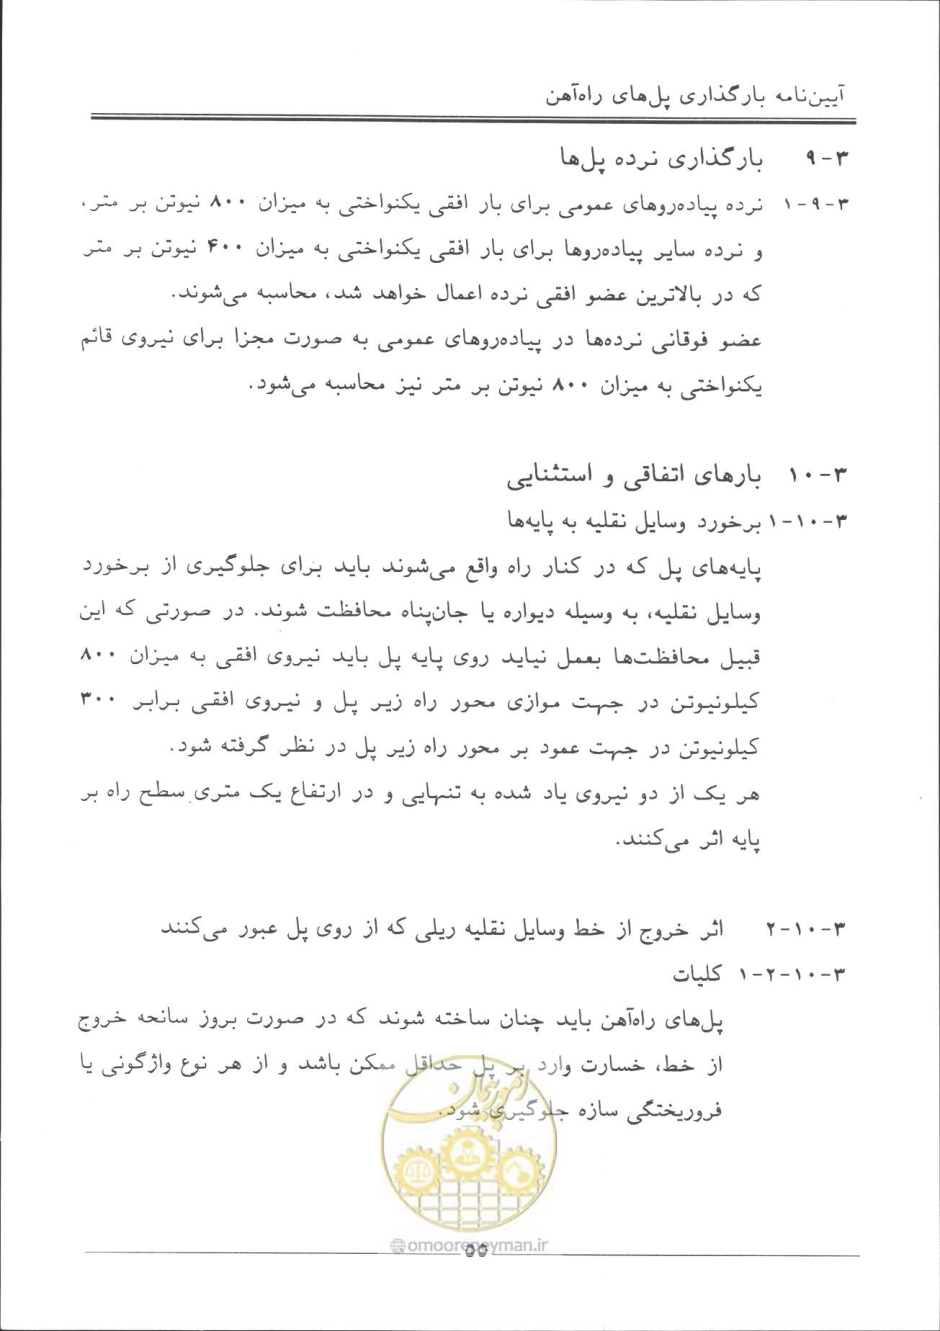 آیین‌نامه بارگذاری پل‌های راه‌آهن
۳-۹ بارگذاری نرده پل‌ها
۳-۹-۱ نرده پیاده‌روهای عمومی برای بار افقی یکنواختی به میزان ۸۰۰ نیوتن بر متر،
و نرده سایر پیاده‌روها برای بار افقی یکنواختی به میزان ۴۰۰ نیوتن بر متر
که در بالاترین عضو افقی نرده اعمال خواهد شد، محاسبه می‌شوند.
عضو فوقانی نرده‌ها در پیاده‌روهای عمومی به صورت مجزا برای نیروی قائم
یکنواختی به میزان ۸۰۰ نیوتن بر متر نیز محاسبه می‌شود.
۳-۱۰ بارهای اتفاقی و استثنایی
۳-۱۰-۱ برخورد وسایل نقلیه به پایه‌ها
پایه‌های پل که در کنار راه واقع می‌شوند باید برای جلوگیری از برخورد
وسایل نقلیه، به وسیله دیواره یا جان‌پناه محافظت شوند. در صورتی که این
قبیل محافظت‌ها بعمل نیاید روی پایه پل باید نیروی افقی به میزان ۸۰۰
کیلونیوتن در جهت موازی محور راه زیر پل و نیروی افقی برابر ۳۰۰
کیلونیوتن در جهت عمود بر محور راه زیر پل در نظر گرفته شود.
هر یک از دو نیروی یاد شده به تنهایی و در ارتفاع یک متری سطح راه بر
پایه اثر می‌کنند.
۳-۱۰-۲ اثر خروج از خط وسایل نقلیه ریلی که از روی پل عبور می‌کنند
۳-۱۰-۲-۱ کلیات
پل‌های راه‌آهن باید چنان ساخته شوند که در صورت بروز سانحه خروج
از خط، خسارت وارد بر پل حداقل ممکن باشد و از هر نوع واژگونی یا
فروریختگی سازه جلوگیری شود.
امور پیمان
@omoorepeyman.ir
۵۵